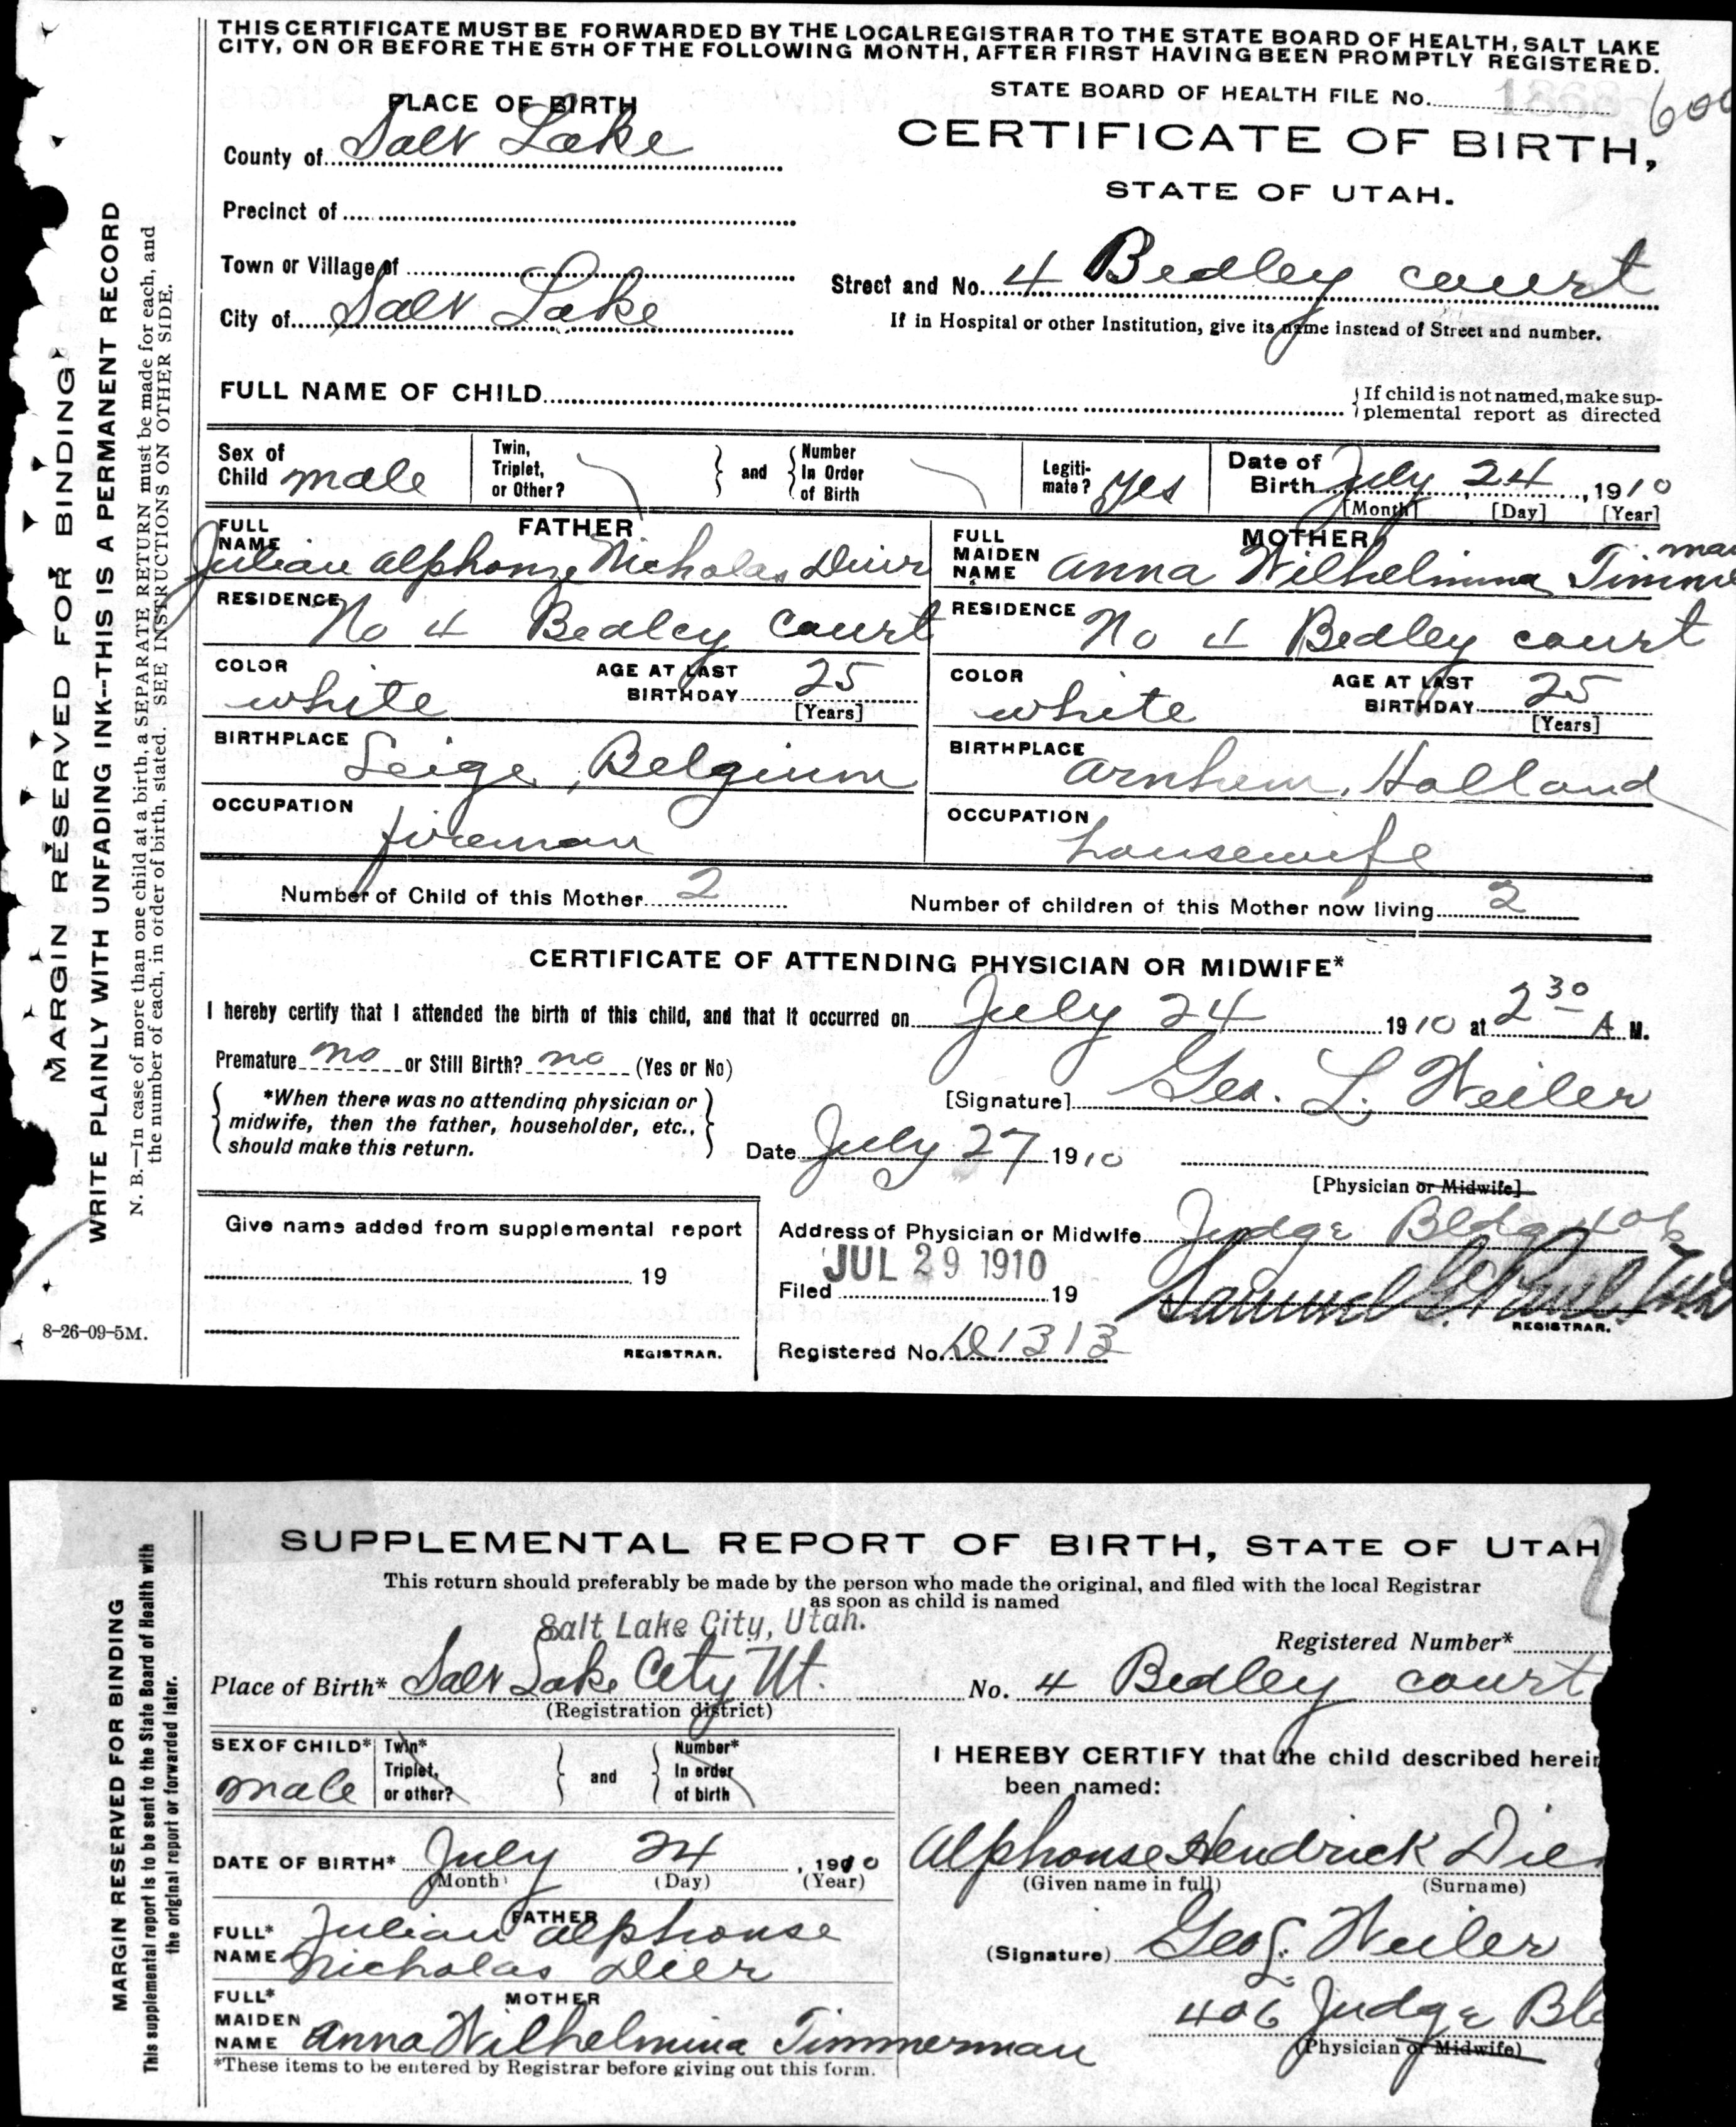 THIS CERTIFICATE MUST BE FORWARDED BY THE LOCAL REGISTRAR TO THE STATE BOARD OF HEALTH, SALT LAKE
CITY, ON OR BEFORE THE 5TH OF THE FOLLOWING MONTH, AFTER FIRST HAVING BEEN PROMPTLY REGISTERED.
STATE BOARD OF HEALTH FILE No.
PLACE OF BIRTH
CERTIFICATE OF BIRTH,
County of Salt Lake
STATE OF UTAH.
Precinct of
Town or Village of
Street and No. 4 Bedley court
City of Salt Lake
If in Hospital or other Institution, give its name instead of Street and number.
FULL NAME OF CHILD
If child is not named, make sup-
plemental report as directed
Sex of
Child male
Twin,
Triplet,
or Other?
and
Number
In Order
of Birth
Legiti-
mate? yes
Date of
Birth July 24, 1910
[Month] [Day] [Year]
FATHER
FULL
NAME
Julian Alphonze Nicholas
MOTHER
FULL
MAIDEN
NAME Anna Wilhelmina Timmerman
RESIDENCE No 4 Bedley Court
RESIDENCE No 4 Bedley court
COLOR white
AGE AT LAST
BIRTHDAY 25
[Years]
COLOR white
AGE AT LAST
BIRTHDAY 25
[Years]
BIRTHPLACE Leige, Belgium
BIRTHPLACE Arnhem, Holland
OCCUPATION
fireman
OCCUPATION
housewife
Number of Child of this Mother 2
Number of children of this Mother now living 2
CERTIFICATE OF ATTENDING PHYSICIAN OR MIDWIFE*
I hereby certify that I attended the birth of this child, and that it occurred on July 24 1910 at 2 30 A M.
Premature no or Still Birth? no (Yes or No)
*When there was no attending physician or
midwife, then the father, householder, etc.,
should make this return.
[Signature] Geo. L. Weiler
Date July 27 1910
[Physician or Midwife]
Give name added from supplemental report
19
REGISTRAR.
Address of Physician or Midwife Judge Bldg 406
JUL 29 1910
Filed 19
Samuel G. Paul
REGISTRAR.
Registered No. 1313
8-26-09-5M.
MARGIN RESERVED FOR BINDING
WRITE PLAINLY WITH UNFADING INK--THIS IS A PERMANENT RECORD
N. B.—In case of more than one child at a birth, a SEPARATE RETURN must be made for each, and
the number of each, in order of birth, stated. SEE INSTRUCTIONS ON OTHER SIDE.
SUPPLEMENTAL REPORT OF BIRTH, STATE OF UTAH
This return should preferably be made by the person who made the original, and filed with the local Registrar
as soon as child is named
Salt Lake City, Utah.
Registered Number*
Place of Birth* Salt Lake City Ut. No. 4 Bedley court
(Registration district)
SEX OF CHILD*
male
Twin*
Triplet,
or other?
and
Number*
In order
of birth
I HEREBY CERTIFY that the child described herein
been named:
DATE OF BIRTH* July 24, 1910
(Month) (Day) (Year)
Alphonse Hendrick Die
(Given name in full) (Surname)
FATHER
FULL*
NAME
Julian Alphonse
Nicholas Dier
(Signature) Geo L. Weiler
MOTHER
FULL*
MAIDEN
NAME Anna Wilhelmina Timmerman
406 Judge Bl
(Physician or Midwife)
*These items to be entered by Registrar before giving out this form.
MARGIN RESERVED FOR BINDING
This supplemental report is to be sent to the State Board of Health with
the original report or forwarded later.